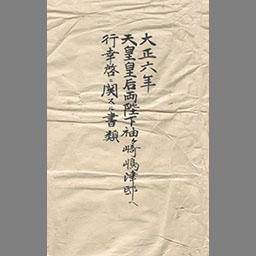 大正六年
天皇皇后両陛下袖ヶ崎嶋津邸へ
行幸啓ニ関スル書類